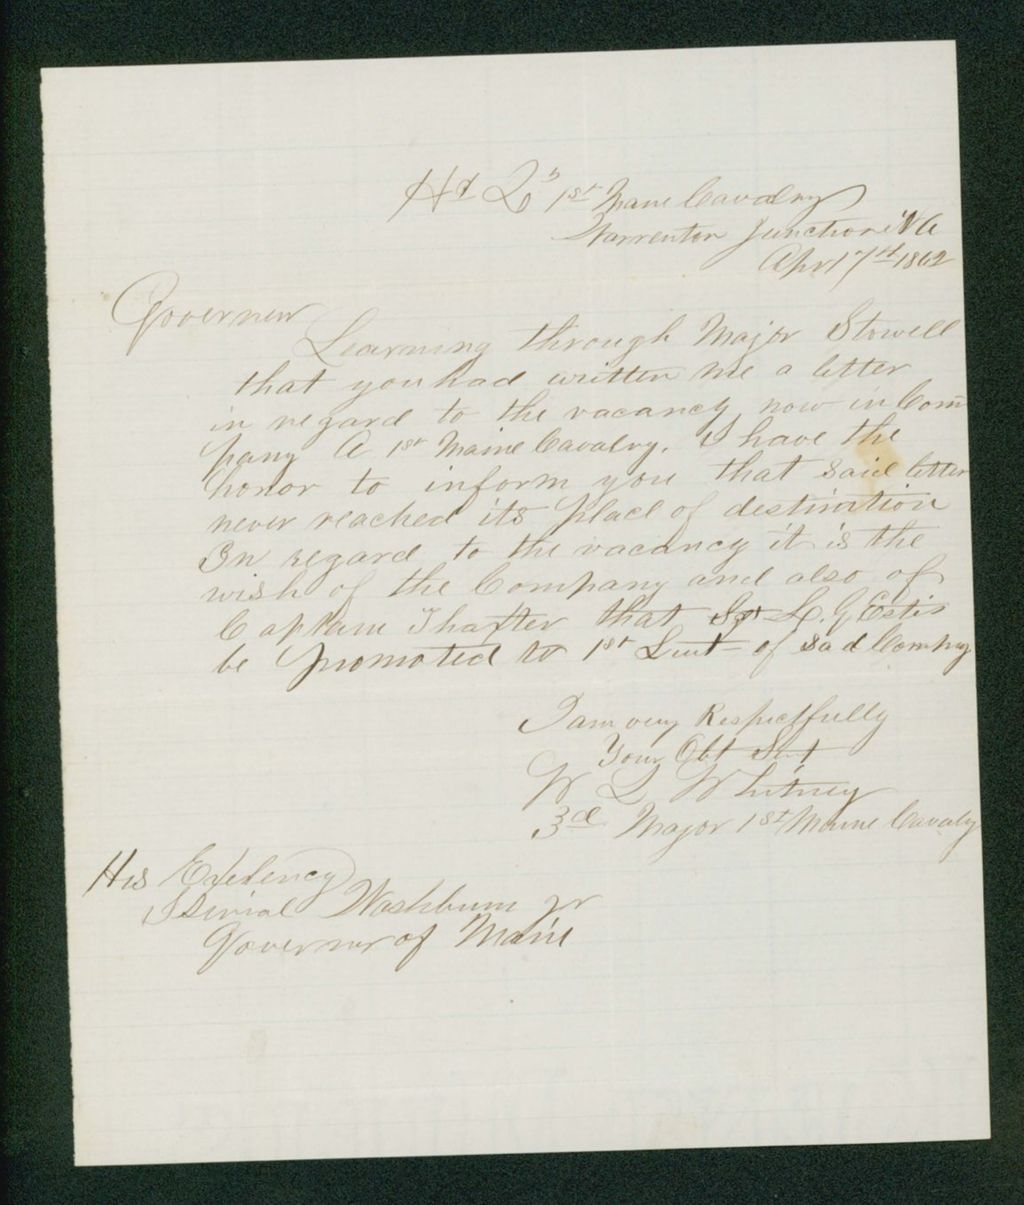 Hd Qrs 1st Maine Cavalry
Warrenton Junction VA
Apr 17th 1862
Governor
Learning through Major Stowell
that you had written me a letter
in regard to the vacancy now in Com
pany A 1st Maine Cavalry. I have the
honor to inform you that said letter
never reached its place of destination
In regard to the vacancy it is the
wish of the Company and also of
Captain Thaxter that L. G. Estis
be promoted to 1st Lieut of said Compny
I am very Respectfully
Your Obt Sevt
W L Whitney
3d Major 1st Maine Cavaly
His Exelency
Washburn Jr
Governor of Maine